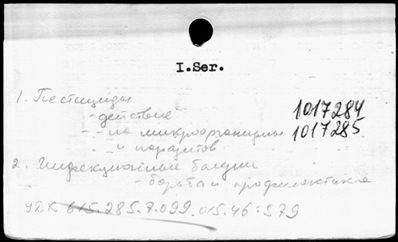 I.Ser.
1. Пестициды
- действие
- - на микроорганизмы
" " и паразитов
1017284
1017285
2. Инфекционные болезни
- борьба и профилактика
УДК 615.285.7.099.015.46:579